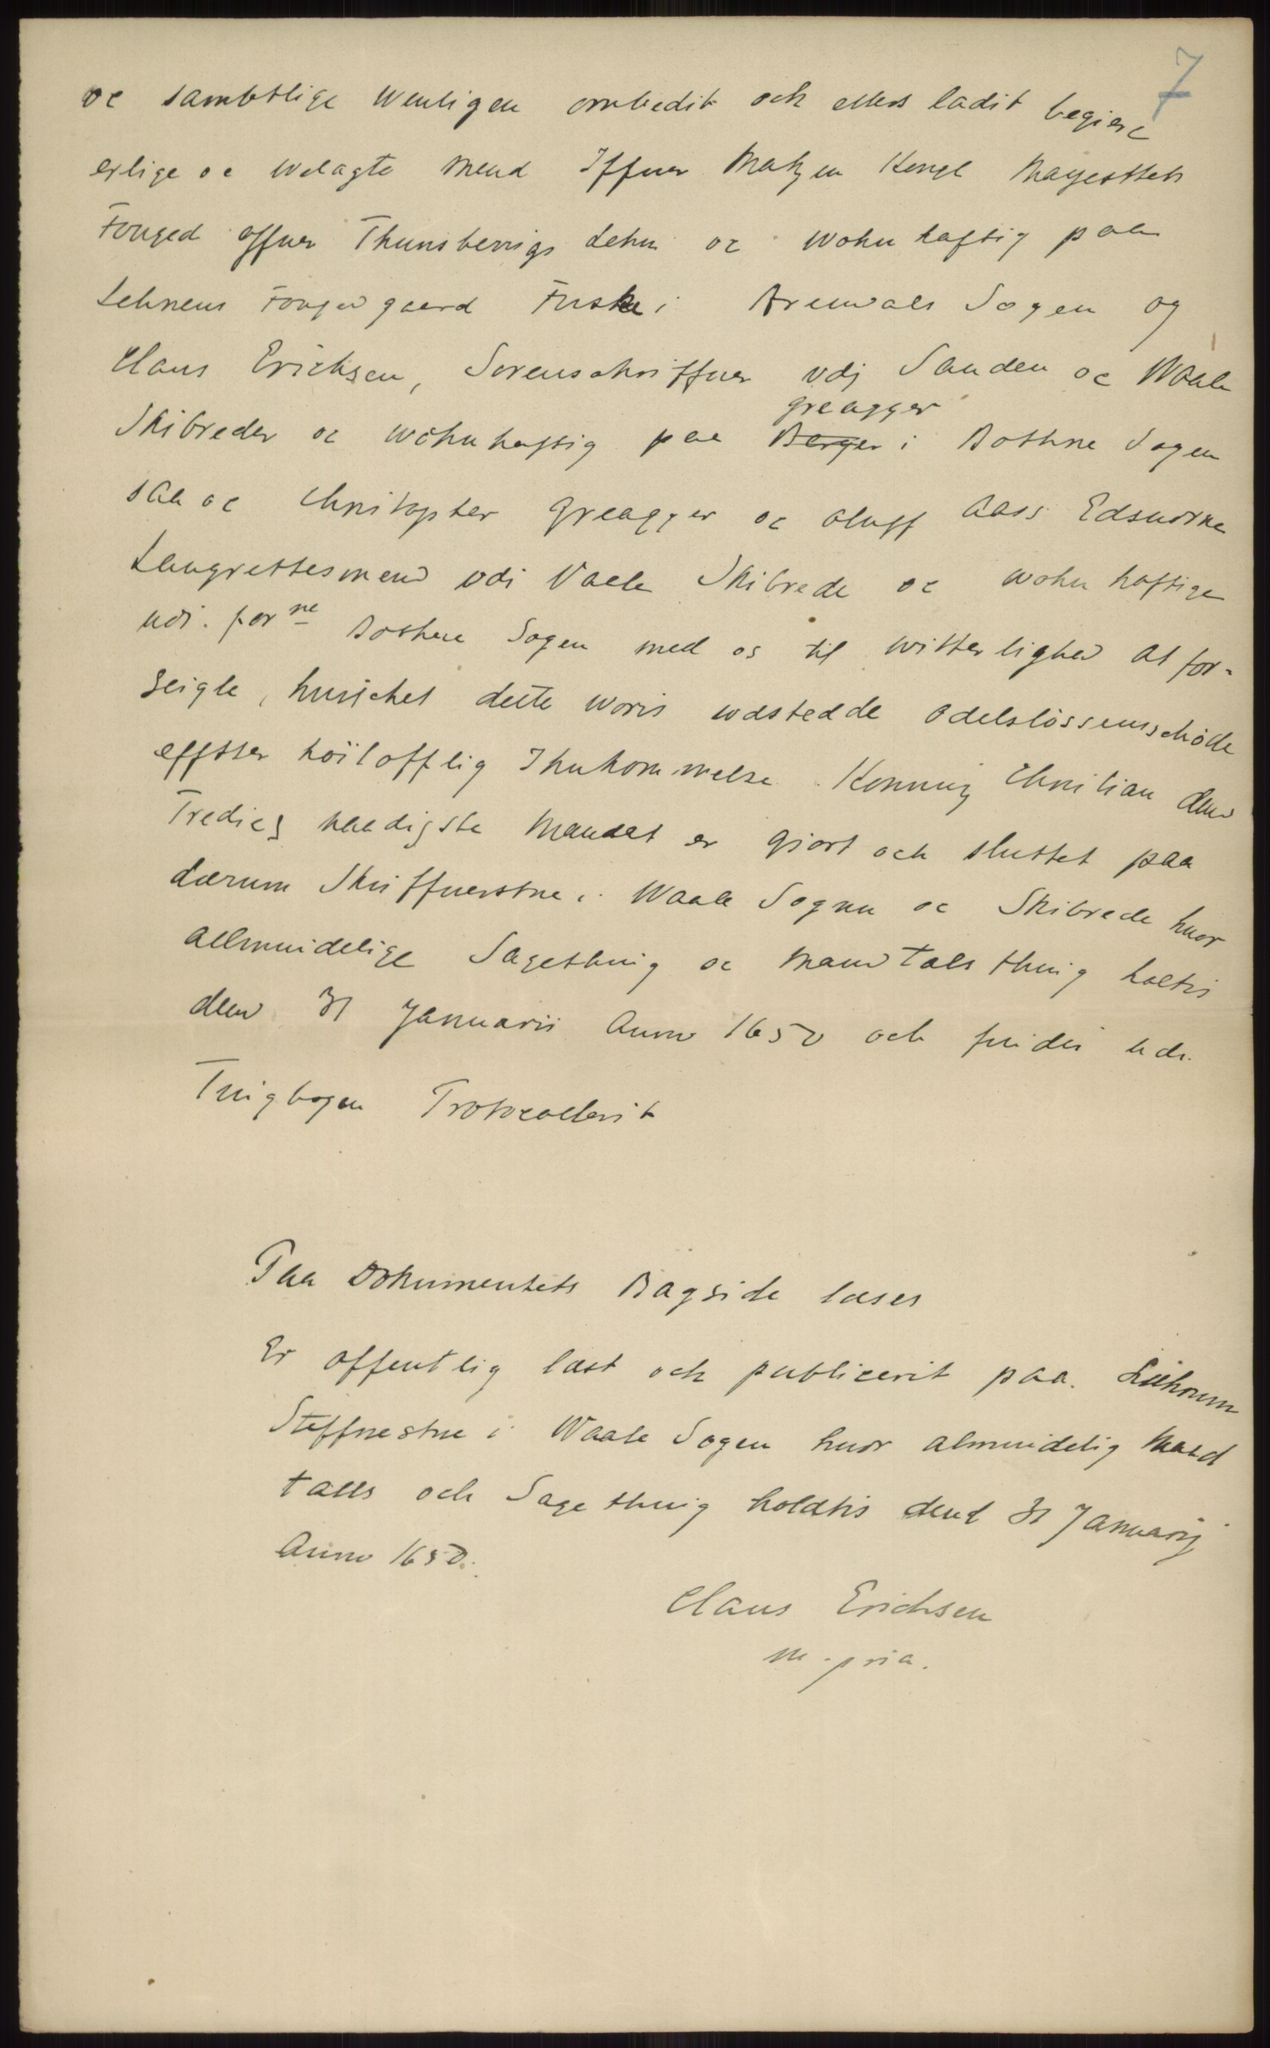 7
oc sambtlige Wenligen ombedit och ellers ladit begiere
erlige oc welagte Mend Iffuer Matzen Kongl Mayesttets
Fouged offuer Thunsbergs Lehn oc wohnhaftig paa
Lehnens Fougedgaard Fuske i Arenvals Sogen og
Claus Erichsen, Sorenschriffuer vdj Sanden oc Waale
greagger
Skibreder oc wohnhaftig paa Berger i Bothne Sogen
saa oc Christopher Greagger oc Oluff Aass Edsuorne
Laugrettesmend vdi Vaale Skibrede oc wohnhaftige
udi forne Bothne Sogen med os til witterlighed at for-
seigle, huijchet dette woris wdstedde Odelsløssensschøde
effter høilofflig Ihukommelse Konning Christian den
Tredies naadigste Mandat er giort och sluttet paa
Lærum Skiffuerstue i Waale Sogen oc Skibrede huor
allmindelige Sagething oc Mandtals thing holtis
den 31 Januarii Anno 1650 och findis udi
Tingbogen Protocollerit
Paa Dokumentets Bagside læses
Er offentlig læst och publicerit paa
Steffnestue i Waale Sogen huor almindelig Mand
talls och Sagething holdtis dend 31 Januarij
Anno 1650.
Claus Erichsen
m. pria.